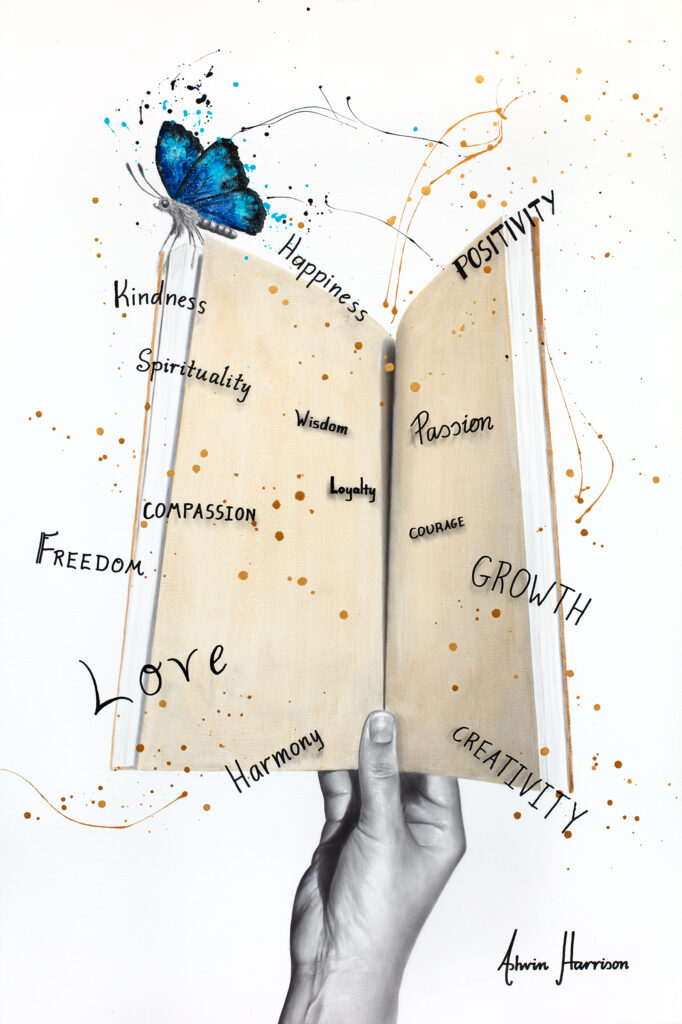 Happiness
POSITIVITY
Kindness
Spirituality
Wisdom
Passion
Loyalty
COMPASSION
COURAGE
FREEDOM
GROWTH
Love
Harmony
CREATIVITY
Ashvin Harrison